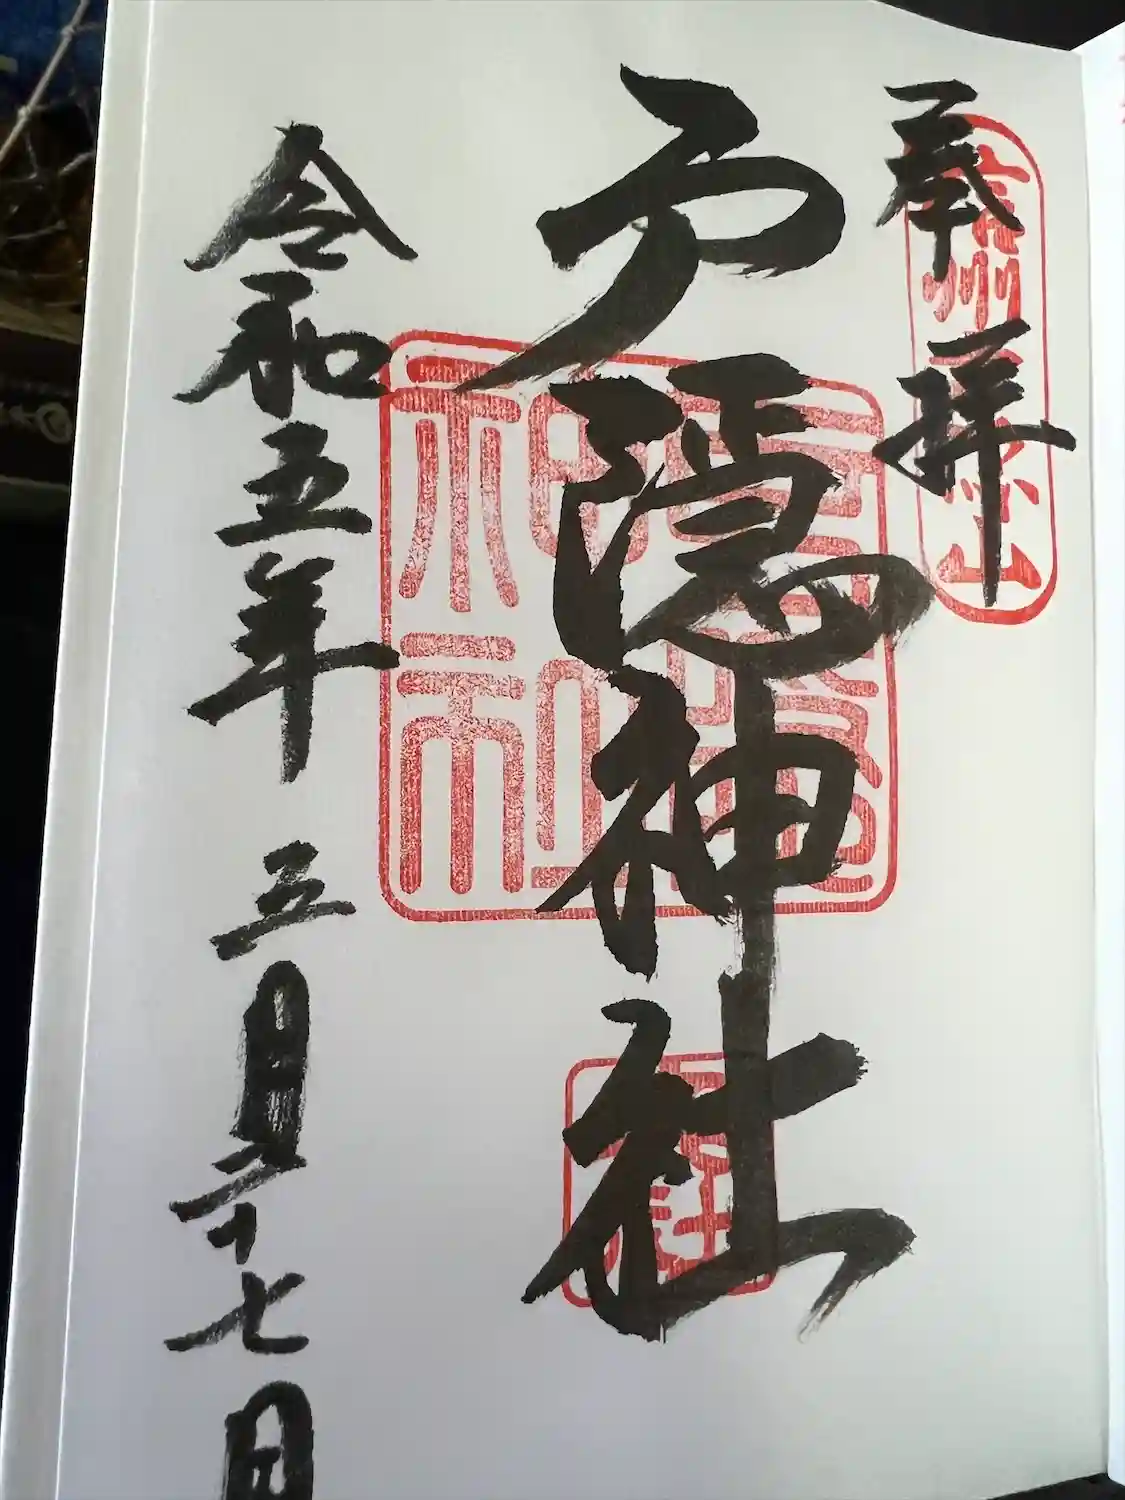 奉拝
戸隠神社
令和五年 五月二十七日
信州
山
神社